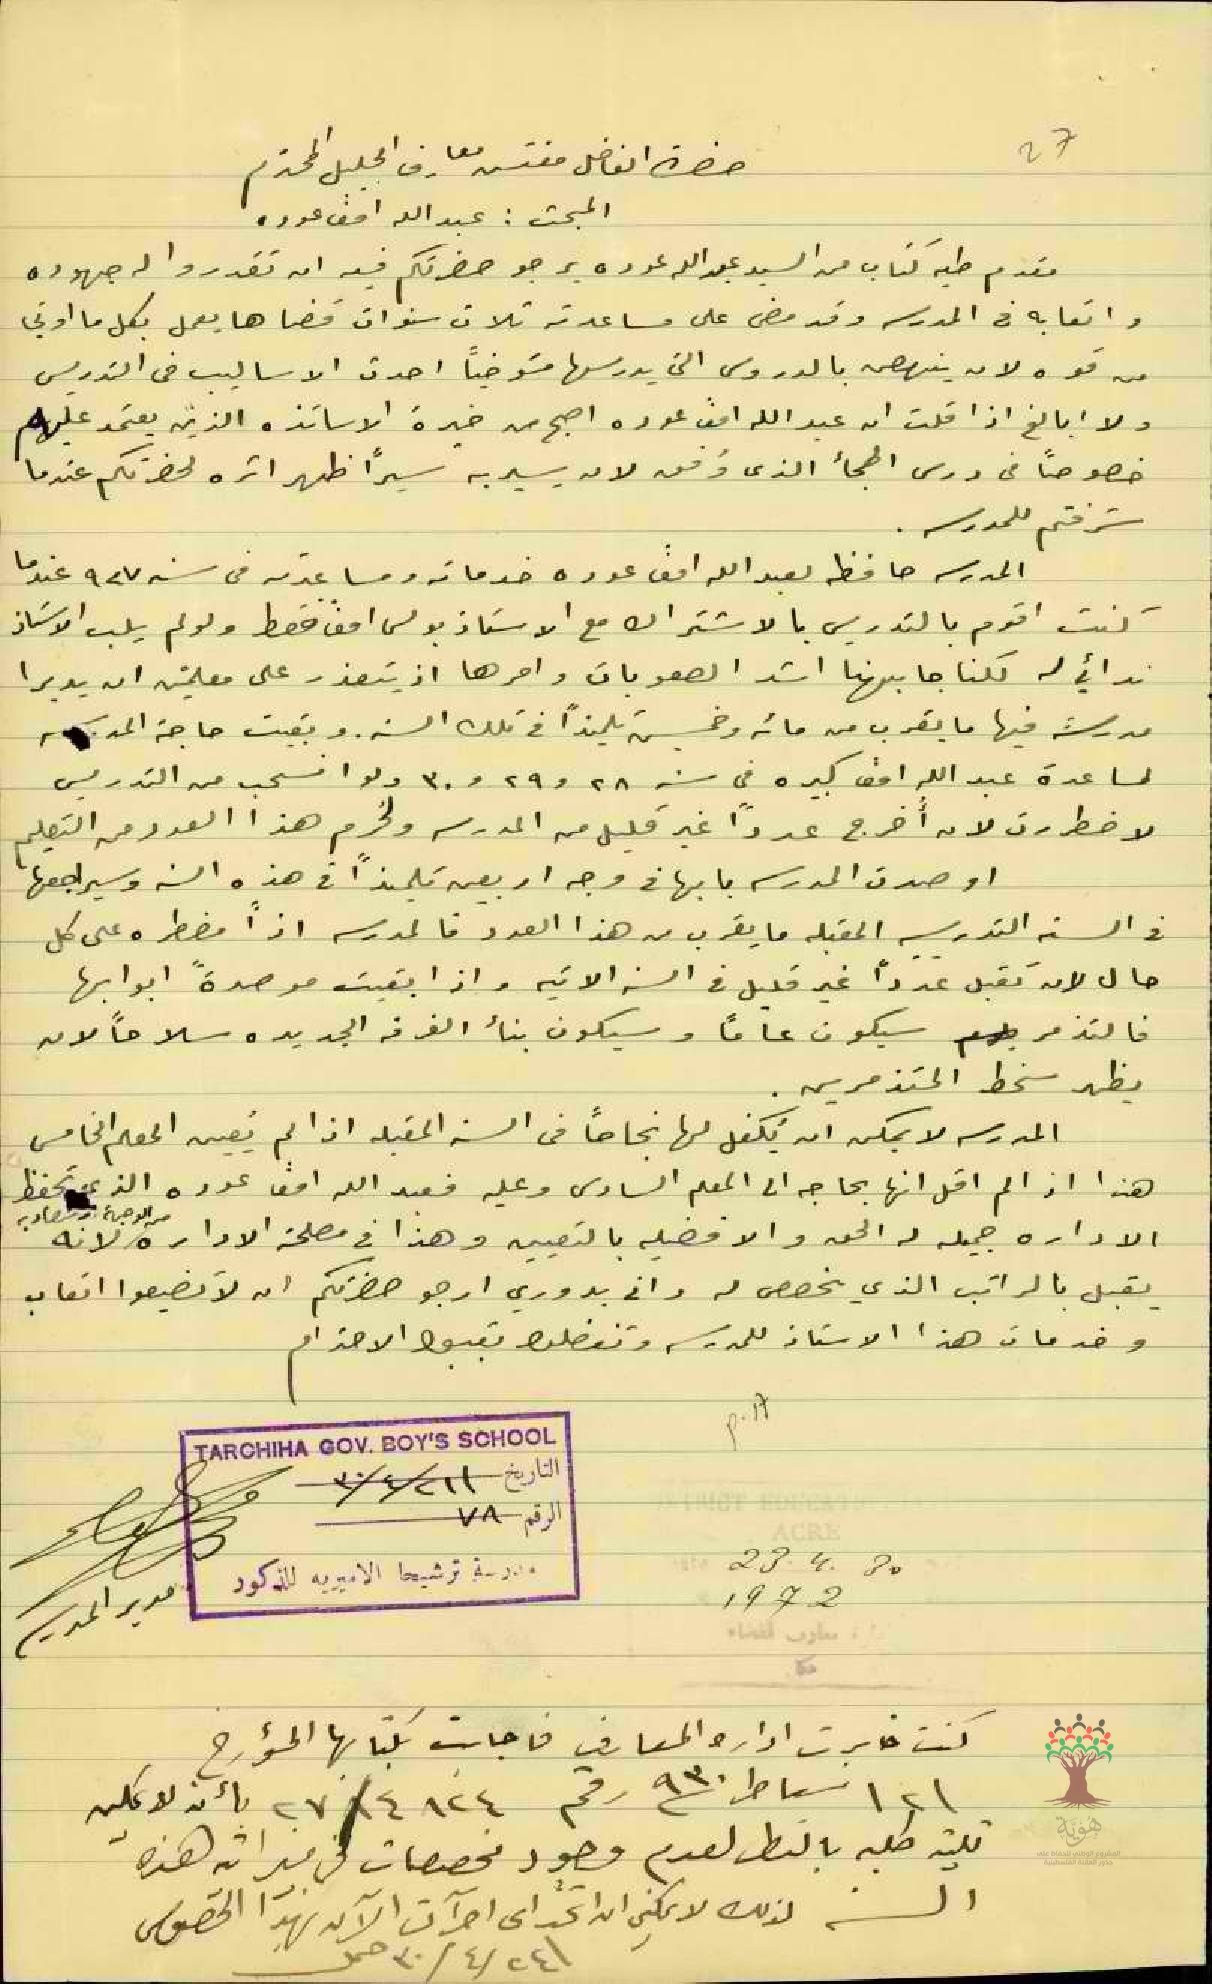 27
حضرة الفاضل مفتش معارف الجليل المحترم
المبحث : عبد الله افندي عوده
مقدم طيه كتاب من السيد عبد الله عوده يرجو حضرتكم فيه ان تقدروا له جهوده
و اتعابه في المدرسه وقد مضى على مساعدته ثلاث سنوات قضاها يعمل بكل ما اوتي
من قوه لان ينهض بالدروس التي يدرسها متوخياً احدث الاساليب في التدريس
ولا ابالغ اذا قلت ان عبد الله افندي عوده اصبح من خيرة الاساتذه الذين يعتمد عليهم
خصوصاً في درس الهجاء الذي وُفق لان يسير به سيراً ظهر اثره لحضرتكم عندما
شرفتم للمدرسه .
المدرسه حافظه لعبد الله افندي عوده خدماته ومساعدته في سنه ٩٢٧ عندما
كنت اقوم بالتدريس بالاشتراك مع الاستاذ بولس افندي فقط ولو لم يلب الاستاذ
ندائي له لكنا جابهنا اشد الصعوبات وامرها اذ يتعذر على معلمين ان يديرا
مدرسة فيها ما يقرب من مائه وخمسين تلميذاً في تلك السنه . وبقيت حاجة المدرسه
لمساعدة عبد الله افندي كبيره في سنه ٢٨ و ٢٩ و ٣٠ ولو انسحب من التدريس
لاضطررت لان أُخرج عدداً غير قليل من المدرسه ولحُرم هذا العدد من التعليم
اوصدت المدرسه بابها في وجه اربعين تلميذاً في هذه السنه وسيراجعها
في السنه التدريسيه المقبله ما يقرب من هذا العدد فالمدرسه اذاً مضطره على كل
حال لان تقبل عدداً غير قليل في السنه الاتيه واذا بقيت موصدةً ابوابها
فالتذمر سيكون عاماً وسيكون بناء الغرفه الجديده سلاحاً لان
يظهر سخط المتذمرين .
المدرسه لا يمكن ان يُكفل لها نجاحاً في السنه المقبله اذا لم تعيين المعلم الخامس
هذا اذا لم اقل انها بحاجه الى المعلم السادس وعليه فعبد الله افندي عوده الذي تحفظ
الاداره جميله له الحق والافضليه بالتعيين وهذا في مصلحة الاداره من الوجهة الاقتصاديه لانه
يقبل بالراتب الذي يخصص له واني بدوري ارجو حضرتكم ان لا تضيعوا اتعاب
وخدمات هذا الاستاذ للمدرسه وتفضلوا بقبول الاحترام
p. 17
TARCHIHA GOV. BOY'S SCHOOL
التاريخ ٢١/٤/٣٠
الرقم ٧٨
مدرسة ترشيحا الاميريه للذكور
مدير المدرسه
DISTRICT EDUCATION
ACRE
23. 4. 30
1972
معارف لقضاء
عكا
كنت خابرت ادارة المعارف فاجابت بكتابها المؤرخ
٢١ شباط ٩٣٠ رقم ٢٧/١٤٨٢٤ بأنه لا يمكن
تلبية طلبه بالنظر لعدم وجود مخصصات في ميزانية هذه
السنه لذلك لا يمكنني ان اتخذ اي اجراآت الآن بهذا الخصوص
٢٤/٤/٣٠
هوية
المشروع الوطني للحفاظ على
جذور العائلة الفلسطينية